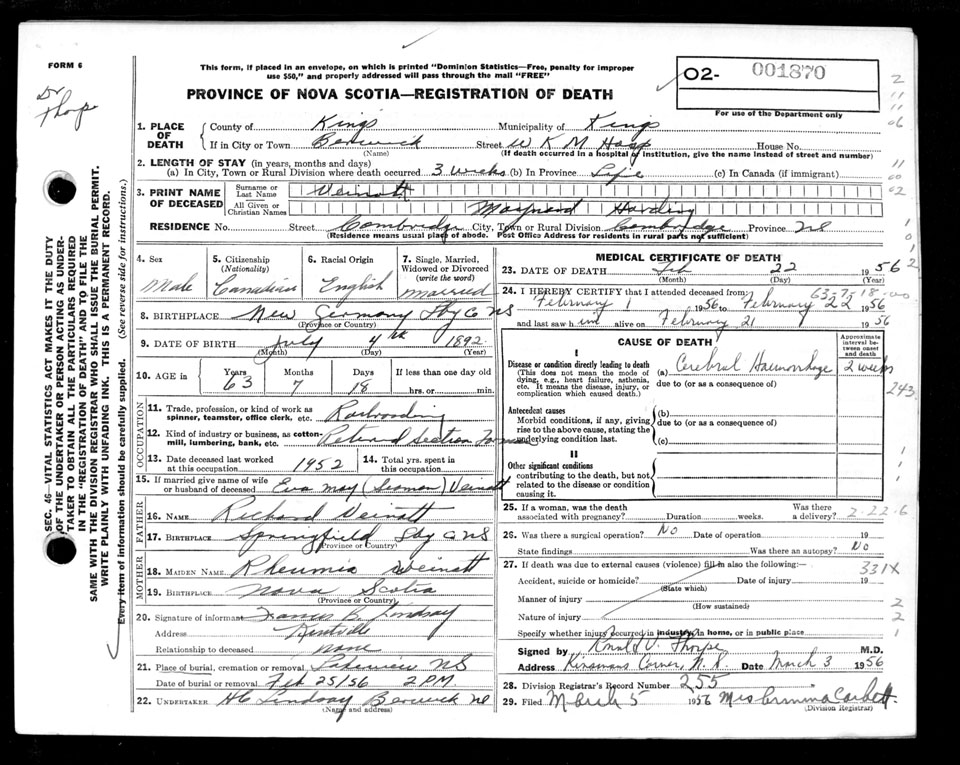 FORM 6
Dr Thorpe
This form, if placed in an envelope, on which is printed "Dominion Statistics—Free, penalty for improper
use $50," and properly addressed will pass through the mail "FREE"
PROVINCE OF NOVA SCOTIA—REGISTRATION OF DEATH
O2- 001870
For use of the Department only
SEC. 46—VITAL STATISTICS ACT MAKES IT THE DUTY
OF THE UNDERTAKER OR PERSON ACTING AS UNDER-
TAKER TO OBTAIN ALL THE PARTICULARS REQUIRED
IN THE "REGISTRATION OF DEATH" AND TO FILE THE
SAME WITH THE DIVISION REGISTRAR WHO SHALL ISSUE THE BURIAL PERMIT.
WRITE PLAINLY WITH UNFADING INK. THIS IS A PERMANENT RECORD.
Every item of information should be carefully supplied. (See reverse side for instructions.)
1. PLACE OF DEATH County of Kings Municipality of Kings
If in City or Town Berwick Street W K M Hosp House No.
(Name) (If death occurred in a hospital or institution, give the name instead of street and number)
2. LENGTH OF STAY (in years, months and days)
(a) In City, Town or Rural Division where death occurred 3 weeks (b) In Province Life (c) In Canada (if immigrant)
3. PRINT NAME OF DECEASED Surname or Last Name Veinott
All Given or Christian Names Maynard Harding
RESIDENCE No. Street Cambridge City, Town or Rural Division Cambridge Province NS
(Residence means usual place of abode. Post Office Address for residents in rural parts not sufficient)
4. Sex Male
5. Citizenship (Nationality) Canadian
6. Racial Origin English
7. Single, Married, Widowed or Divorced (write the word) married
8. BIRTHPLACE New Germany Lby Co NS
(Province or Country)
9. DATE OF BIRTH July 4th 1892
(Month) (Day) (Year)
10. AGE in Years 63 Months 7 Days 18 If less than one day old
hrs. or min.
OCCUPATION
11. Trade, profession, or kind of work as spinner, teamster, office clerk, etc. Railroading
12. Kind of industry or business, as cotton-mill, lumbering, bank, etc. Retired Section Foreman
13. Date deceased last worked at this occupation 1952
14. Total yrs. spent in this occupation
15. If married give name of wife or husband of deceased Eva May (Seaman) Veinott
FATHER
16. NAME Richard Veinott
17. BIRTHPLACE Springfield Lby Co NS
(Province or Country)
MOTHER
18. MAIDEN NAME Rheumia Veinott
19. BIRTHPLACE Nova Scotia
(Province or Country)
20. Signature of informant Francis B. Lindsay
Address Kentville
Relationship to deceased none
21. Place of burial, cremation or removal NS
Date of burial or removal Feb 25/56 2 PM
22. UNDERTAKER H C Lindsay Berwick NS
(Name and address)
MEDICAL CERTIFICATE OF DEATH
23. DATE OF DEATH Feb 22 1956
(Month) (Day)
24. I HEREBY CERTIFY that I attended deceased from
February 1 1956 to February 22 1956
and last saw him alive on February 21 1956
CAUSE OF DEATH
Approximate interval between onset and death
I
Disease or condition directly leading to death
(This does not mean the mode of dying, e.g., heart failure, asthenia, etc. It means the disease, injury, or complication which caused death.)
(a) Cerebral Haemorrhage 2 weeks
due to (or as a consequence of)
Antecedent causes
Morbid conditions, if any, giving rise to the above cause, stating the underlying condition last.
(b)
due to (or as a consequence of)
(c)
II
Other significant conditions
contributing to the death, but not related to the disease or condition causing it.
243
25. If a woman, was the death associated with pregnancy? Duration weeks. Was there a delivery? 2-22-6
26. Was there a surgical operation? No Date of operation 19
State findings Was there an autopsy? No
27. If death was due to external causes (violence) fill in also the following:— 331X
Accident, suicide or homicide? Date of injury 19
(State which)
Manner of injury
(How sustained)
Nature of injury
Specify whether injury occurred in industry, in home, or in public place
Signed by Ronald D. Thorpe M.D.
Address Kinsmans Corner, N.S. Date March 3 1956
28. Division Registrar's Record Number 255
29. Filed March 5 1956 Mrs Ermina Corbett
(Division Registrar)